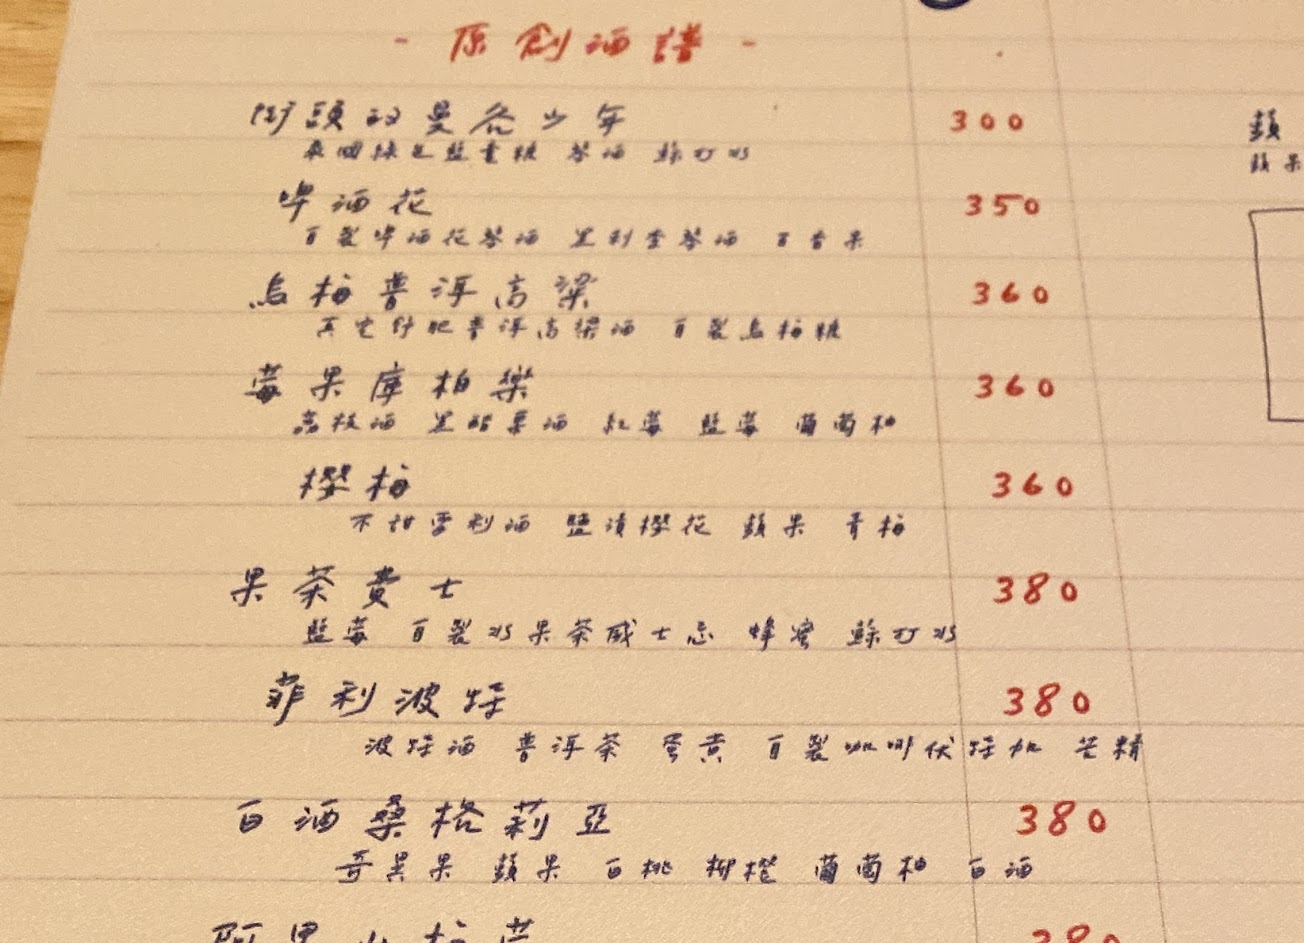 - 原創酒譜 -
街頭的曼谷少年 300
泰國綠色監畫糖 琴酒 蘇打水
啤酒花 350
自製啤酒花琴酒 黑利查琴酒 百香果
烏梅普洱高粱 360
真空舒肥普洱高粱酒 自製烏梅糖
莓果庫柏樂 360
荔枝酒 黑醋栗酒 紅莓 藍莓 葡萄柚
櫻梅 360
不甜雪利酒 鹽漬櫻花 蘋果 青梅
果茶費士 380
藍莓 自製水果茶威士忌 蜂蜜 蘇打水
菲利波特 380
波特酒 普洱茶 蛋黃 自製咖啡伏特加 苦精
白酒桑格莉亞 380
奇異果 蘋果 白桃 柳橙 葡萄柚 白酒
阿里山 380
蘋
蘋果